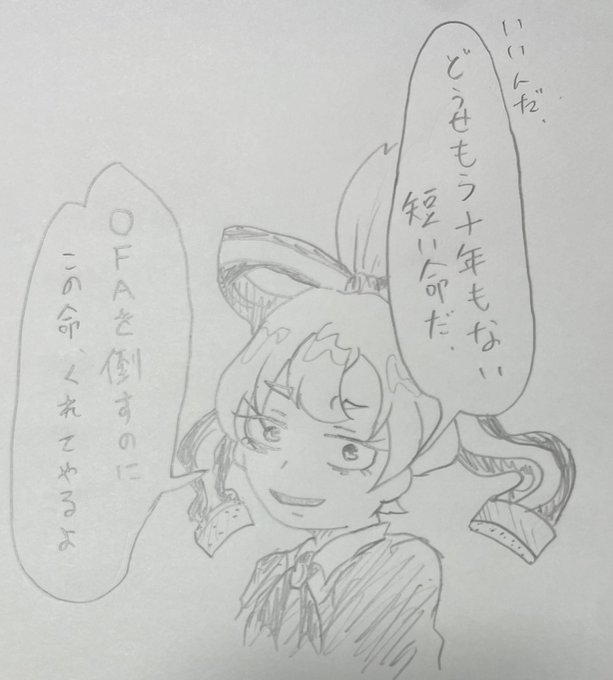 いいんだ.
どうせもう十年もない
短い命だ.
OFAを倒すのに
この命、くれてやるよ